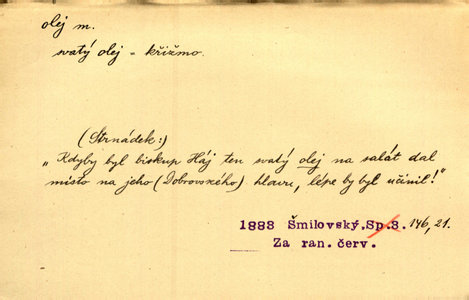 olej m.
svatý olej = křižmo.
(Strnádek:)
„Kdyby byl biskup Háj ten svatý olej na salát dal
místo na jeho (Dobrovského) hlavu, lépe by byl učinil!"
1888 Šmilovský, Sp. 3. 146, 21.
Za ran. červ.